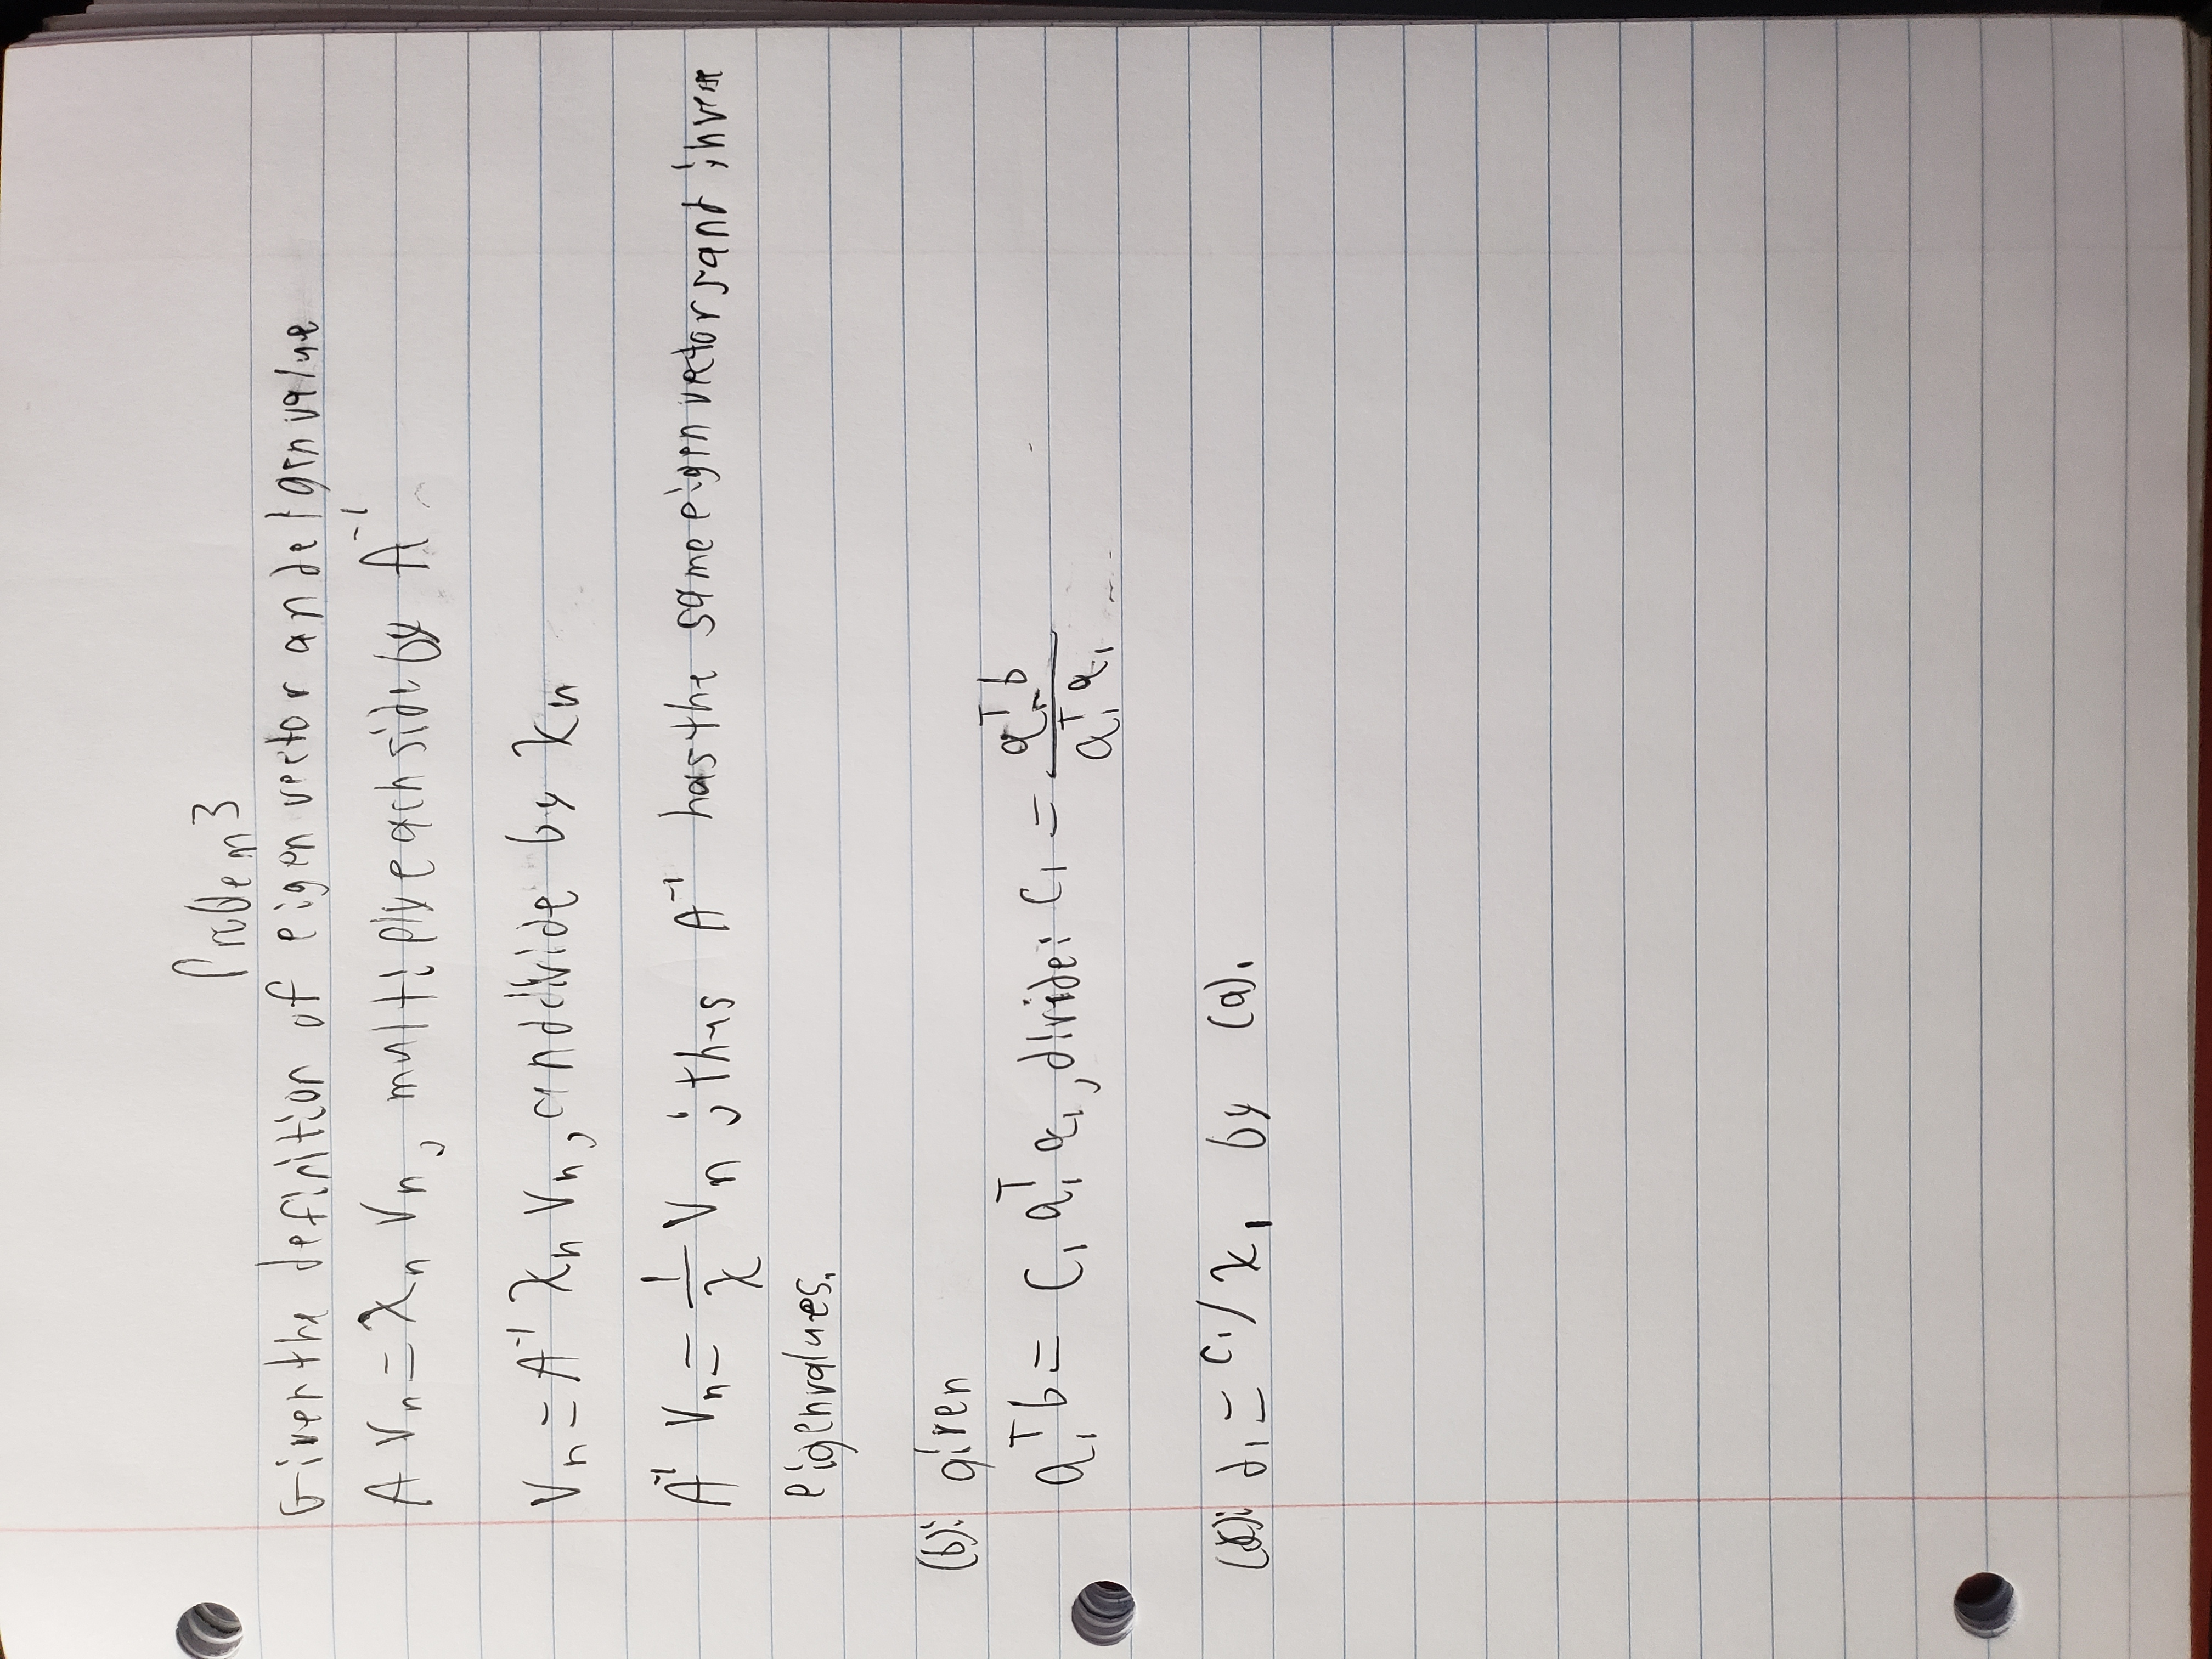 Problem 3
Given the definition of eigen vector and eigenvalue
A Vₙ = λₙ Vₙ, multiply each side by A⁻¹
Vₙ = A⁻¹ λₙ Vₙ, and divide by λₙ
A⁻¹ Vₙ = 1/λ Vₙ ; thus A⁻¹ has the same eigen vectors and inverse
eigenvalues.
(b): given
q₁ᵀb = C₁ q₁ᵀ q₁, divide: C₁ = q₁ᵀb / q₁ᵀq₁
(c): d₁ = C₁/λ₁ by (a).